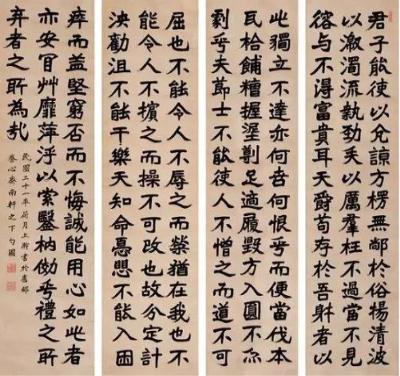 君子能使以允諒方楞無鄙於俗揚清波
以激濁流執勁矢以厲羣枉不過當不見
容與不得富貴耳天爵苟存於吾躬者以
此獨立不達亦何苦何恨乎而便當伐本
瓦拾餔糟握埿剿足適履毀方入圓不亦
劇乎夫節士不能使人不憎之而道不可
屈也不能令人不辱之而榮猶在我也不
能令人不擯之而操不可改也故分定計
決勸沮不能干樂天知命憂慼不能入困
瘁而益堅窮否而不悔誠能用心如此者
亦安肯艸靡萍浮以索鑿枘傚乎禮之所
弃者之所為哉
民國二十一年荷月上澣書於舊都
養心齋南軒之下